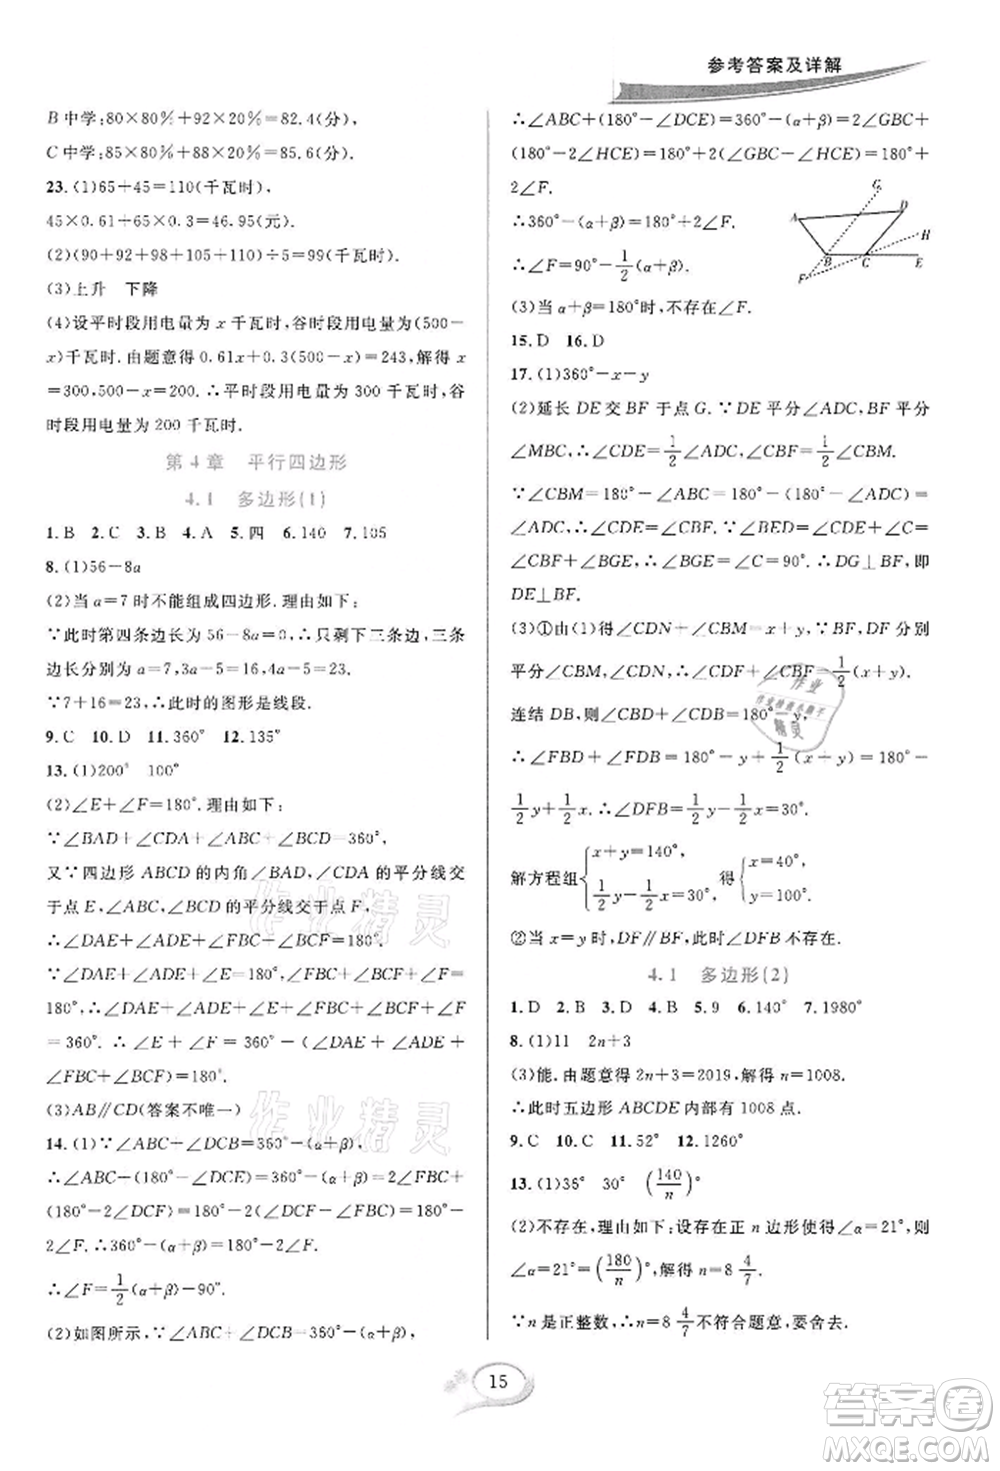 参考答案及详解
B 中学:80×80%+92×20%=82.4(分).
C 中学:85×80%+88×20%=85.6(分).
23.(1)65+45=110(千瓦时),
45×0.61+65×0.3=46.95(元).
(2)(90+92+98+105+110)÷5=99(千瓦时).
(3)上升 下降
(4)设平时段用电量为 x 千瓦时,谷时段用电量为(500-
x)千瓦时.由题意得 0.61x+0.3(500-x)=243,解得 x=
300,500-x=200.∴平时段用电量为 300 千瓦时,谷
时段用电量为 200 千瓦时.
第 4 章 平行四边形
4.1 多边形(1)
1.B 2.C 3.B 4.A 5.四 6.140 7.105
8.(1)56-8a
(2)当 a=7 时不能组成四边形.理由如下:
∵此时第四条边长为 56-8a=0,∴只剩下三条边,三条
边长分别为 a=7,3a-5=16,2a+9=23.
∵7+16=23,∴此时的图形是线段.
9.C 10.D 11.360° 12.135°
13.(1)200° 100°
(2)∠E+∠F=180°.理由如下:
∵∠BAD+∠CDA+∠ABC+∠BCD=360°,
又∵四边形 ABCD 的内角∠BAD,∠CDA 的平分线交
于点 E,∠ABC,∠BCD 的平分线交于点 F,
∴∠DAE+∠ADE+∠FBC+∠BCF=180°.
∵∠DAE+∠ADE+∠E=180°,∠FBC+∠BCF+∠F
=180°,∴∠DAE+∠ADE+∠E+∠FBC+∠BCF+∠F
=360°.∴∠E+∠F=360°-(∠DAE+∠ADE+∠FBC
+∠BCF)=180°.
(3)AB∥CD(答案不唯一)
14.(1)∵∠ABC+∠DCB=360°-(α+β),
∴∠ABC+(180°-∠DCE)=360°-(α+β)=2∠FBC+
(180°-2∠DCF)=180°-2(∠DCF-∠FBC)=180°-
2∠F.∴360°-(α+β)=180°-2∠F.
∴∠F=1/2(α+β)-90°.
(2)如图所示,∵∠ABC+∠DCB=360°-(α+β),
∴∠ABC+(180°-∠DCE)=360°-(α+β)=2∠GBC+
(180°-2∠HCE)=180°+2(∠GBC-∠HCE)=180°+
2∠F.
∴360°-(α+β)=180°+2∠F.
∴∠F=90°-1/2(α+β).
G
A
D
H
B
C
E
F
(3)当 α+β=180°时,不存在∠F.
15.D 16.D
17.(1)360°-x-y
(2)延长 DE 交 BF 于点 G.∵DE 平分∠ADC,BF 平分
∠MBC,∴∠CDE=1/2∠ADC,∠CBF=1/2∠CBM.
∵∠CBM=180°-∠ABC=180°-(180°-∠ADC)=
∠ADC,∴∠CDE=∠CBF.∵∠BGE=∠CDE+∠C=
∠CBF+∠C,∴∠BGE=∠C=90°.∴DG⊥BF,即
DE⊥BF.
(3)①由(1)得∠CDN+∠CBM=x+y,∵BF,DF 分别
平分∠CBM,∠CDN,∴∠CDF+∠CBF=1/2(x+y).
连结 DB,则∠CBD+∠CDB=180°-y,
∴∠FBD+∠FDB=180°-y+1/2(x+y)=180°-
1/2y+1/2x.∴∠DFB=1/2y-1/2x=30°.
解方程组{x+y=140°, 1/2y-1/2x=30°, 得{x=40°, y=100°.
②当 x=y 时,DF∥BF,此时∠DFB 不存在.
4.1 多边形(2)
1.D 2.B 3.D 4.B 5.9 6.140° 7.1980°
8.(1)11 2n+3
(3)能.由题意可得 2n+3=2019,解得 n=1008.
∴此时五边形 ABCDE 内部有 1008 点.
9.C 10.C 11.52° 12.1260°
13.(1)36° 30° (140/n)°
(2)不存在,理由如下:设存在正 n 边形使得∠α=21°,则
∠α=21°=(180/n)°,解得 n=8 4/7.
∵n 是正整数,∴n=8 4/7 不符合题意,要舍去.
15
作业精灵
作业精灵
答案圈
MXQE.COM